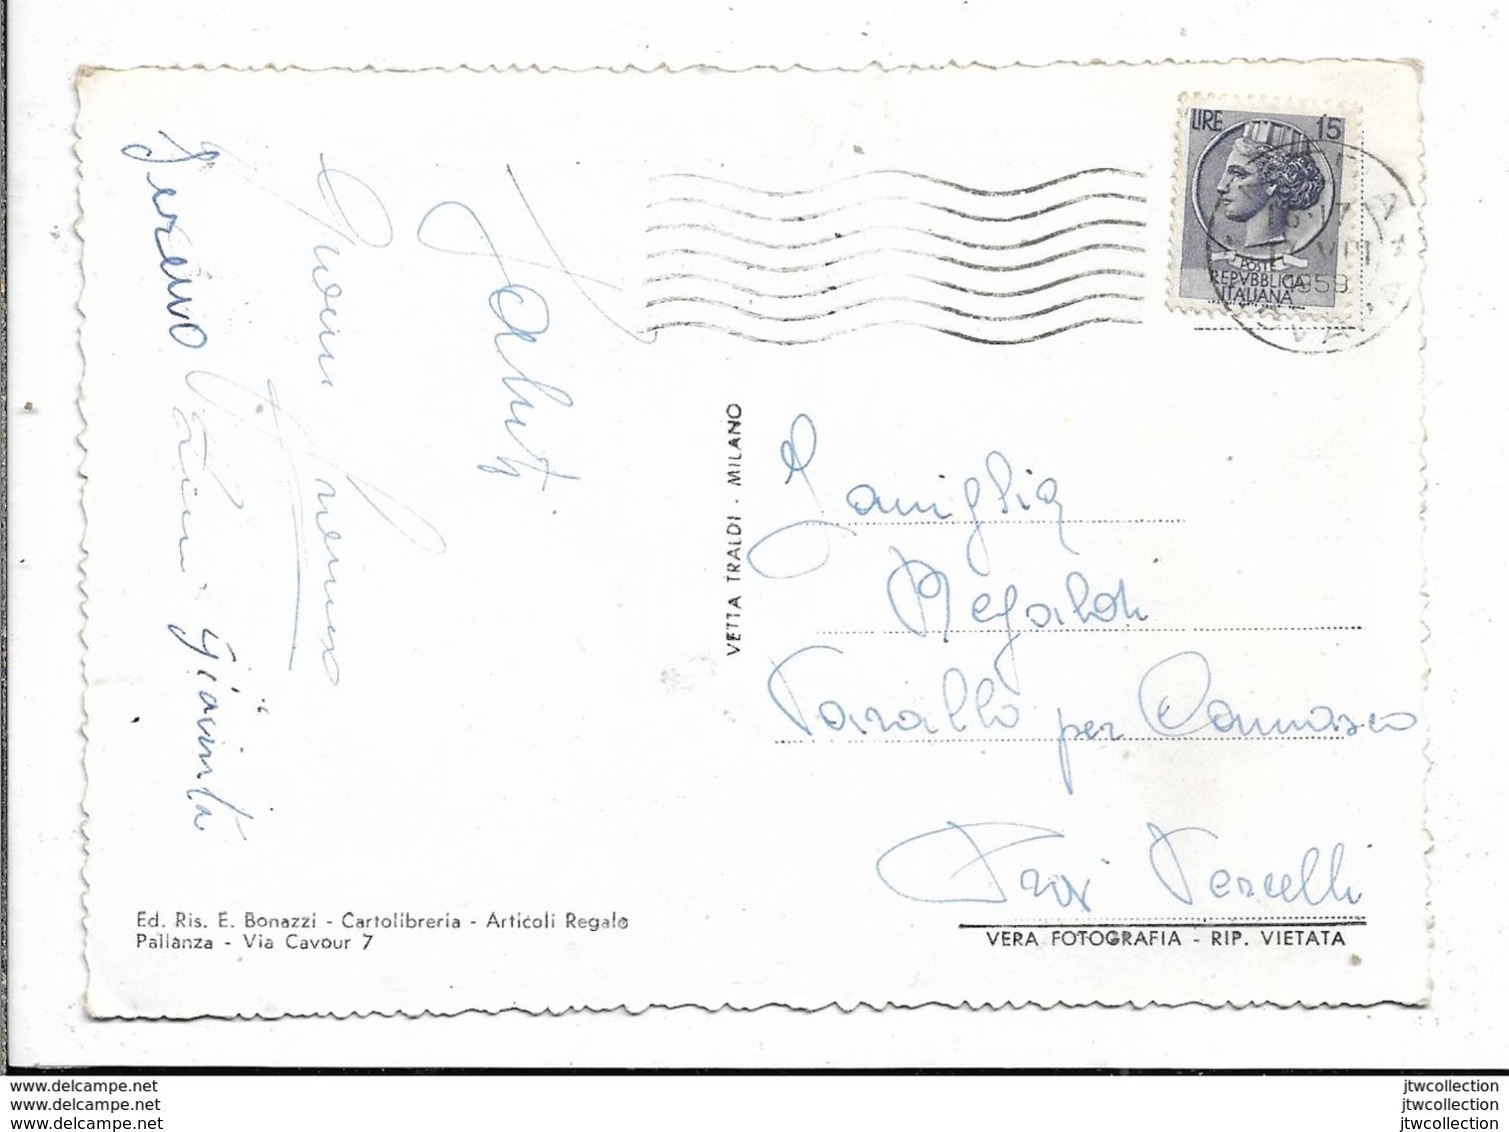 LIRE 15
POSTE
REPVBBLICA
ITALIANA
16-17
VIII
1959
Saluti
Sereno
Gianinta
VETTA TRALDI - MILANO
Famiglia
Regaldi
Varallo per Camasco
Prov Vercelli
VERA FOTOGRAFIA - RIP. VIETATA
Ed. Ris. E. Bonazzi - Cartolibreria - Articoli Regalo
Pallanza - Via Cavour 7
www.delcampe.net
www.delcampe.net
www.delcampe.net
jtwcollection
jtwcollection
jtwcollection